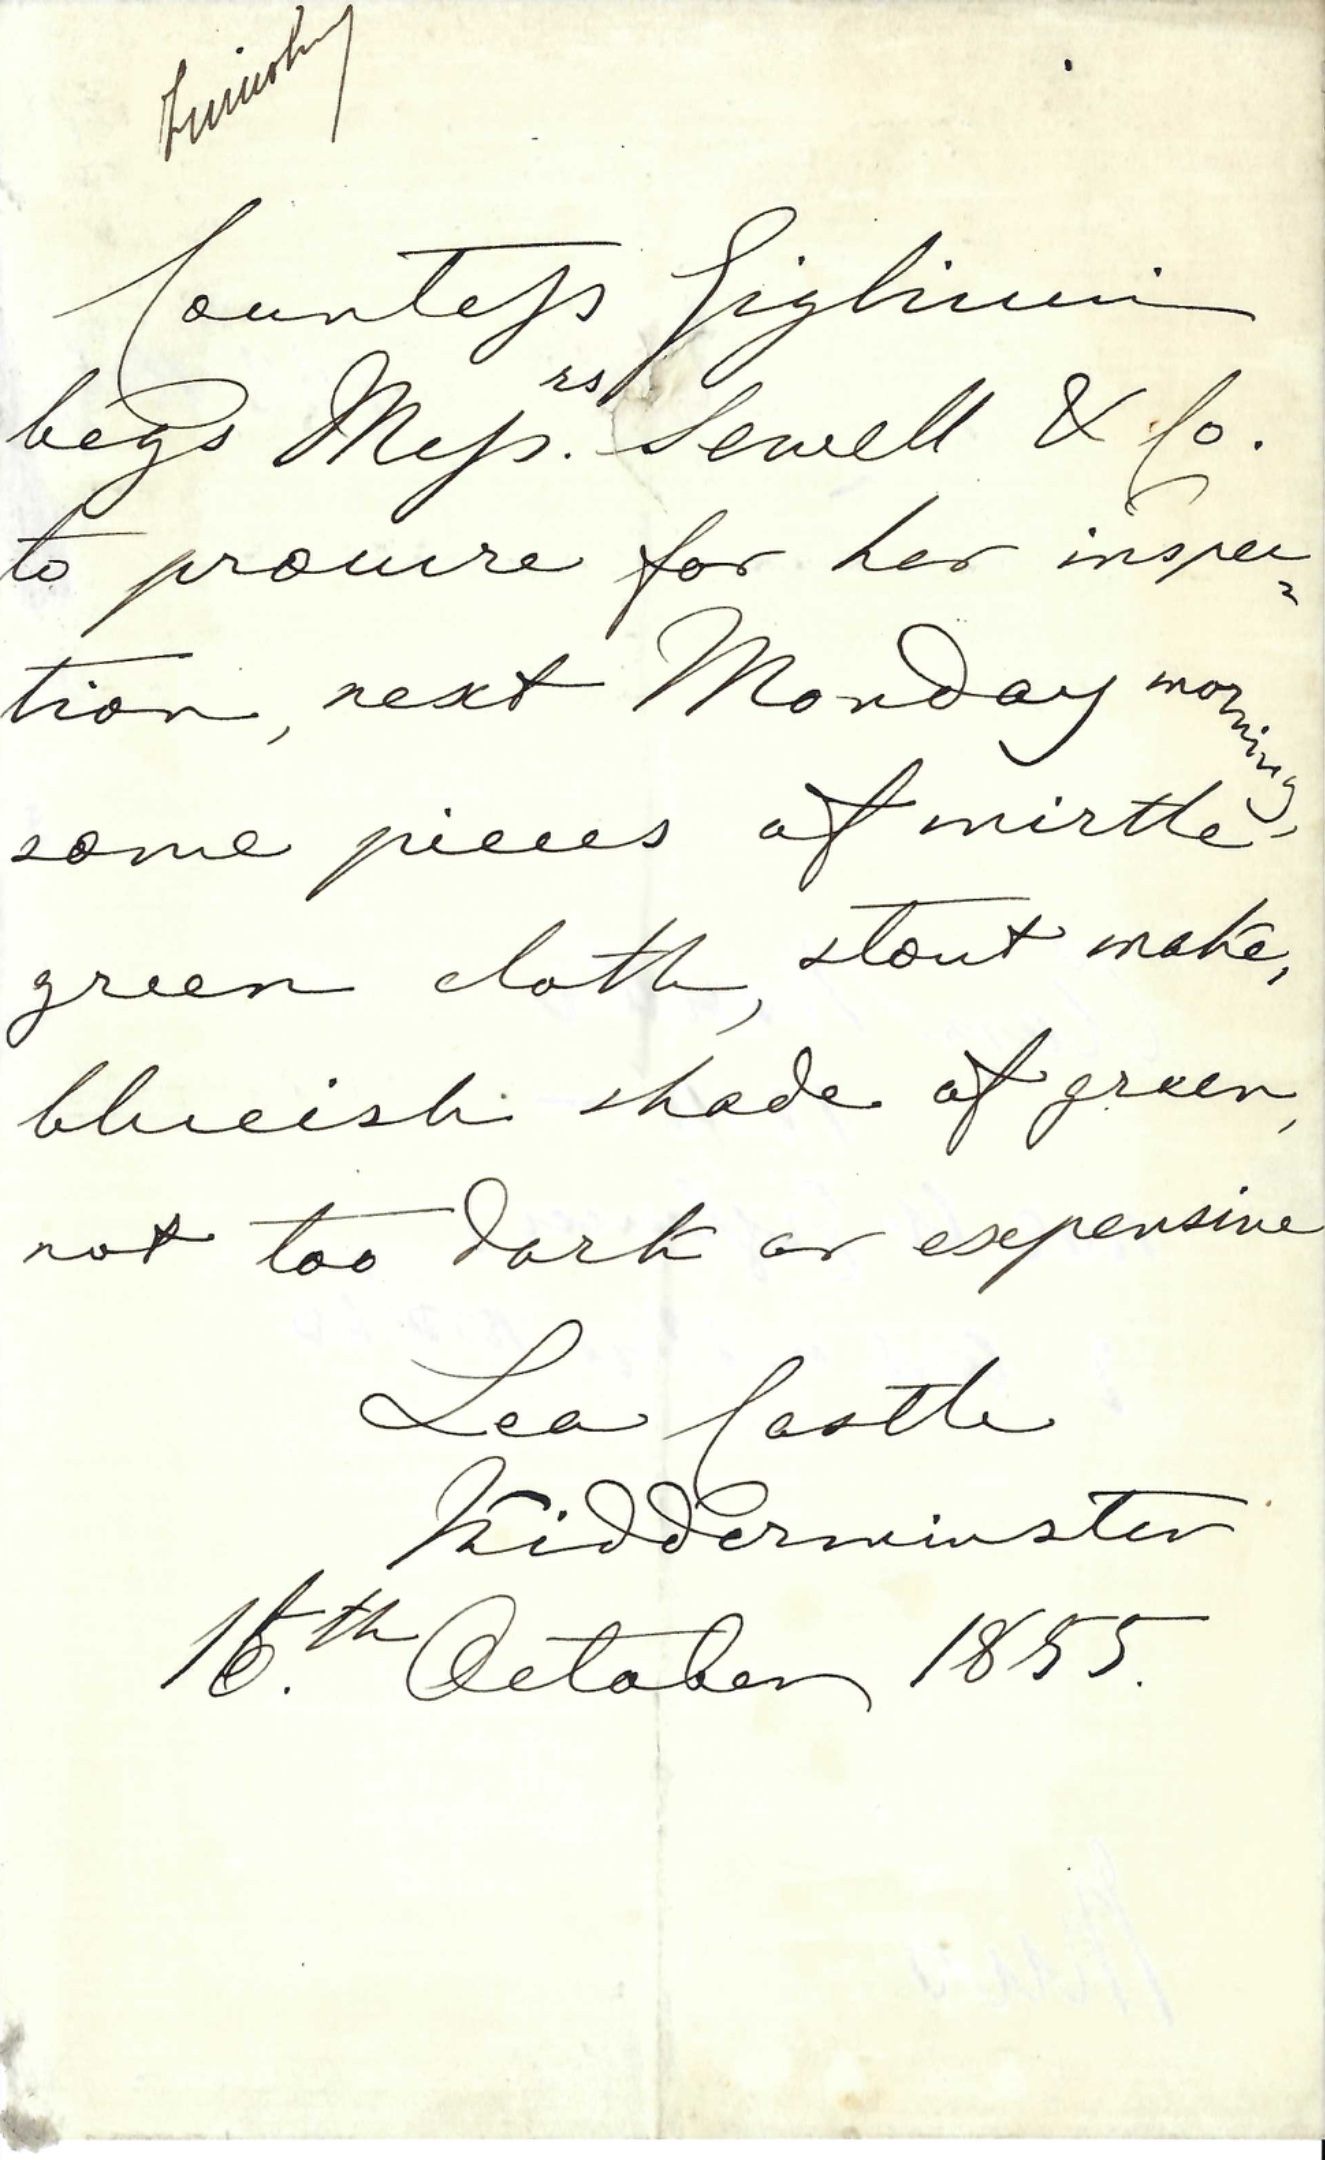 Countess Gigliucci
begs Messrs. Sewell & Co.
to procure for her inspec-
tion, next Monday morning,
some pieces of mirtle-
green cloth, stout make,
blueish shade of green,
not too dark or expensive
Lea Castle
Kidderminster
16th. October 1855.